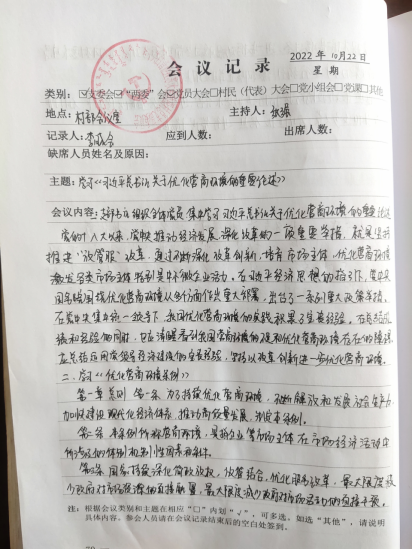 会议记录
2022年10月22日
星期
类别：☑支委会☑“两委”会☑党员大会□村民（代表）大会□党小组会□党课□其他
地点：村部会议室 主持人：张
记录人：李 应到人数： 出席人数：
缺席人员姓名及原因：
主题：学习《习近平总书记关于优化营商环境的重要论述》
会议内容：支部书记组织全体党员集中学习习近平总书记关于优化营商环境的重要论述
党的十八大以来，党中央推动经济发展、深化改革的一项重要举措，就是坚持
推进“放管服”改革，通过不断深化改革创新，培育市场主体，优化营商环境
激发各类市场主体特别是中小微企业活力。在习近平经济思想的指引下，党中央
国务院围绕优化营商环境从多方面作出重大部署，出台了一系列重大政策举措。
在党中央集中统一领导下，我国优化营商环境的实践积累了宝贵经验。在总结成
绩和经验的同时，也应清醒看到我国营商环境的
在总结运用 经济建设的宝贵经验，坚持以改革创新进一步优化营商环境。
二、学习《优化营商环境条例》
第一章 总则 第一条 为了持续优化营商环境，不断解放和发展社会生产力，
加快建设现代化经济体系，推动高质量发展，制定本条例。
第二条 本条例所称营商环境，是指企业等市场主体在市场经济活动中
所涉及的体制机制性因素和条件。
第三条 国家持续深化简政放权、放管结合、优化服务改革，最大限度减
少政府对市场资源的直接配置，最大限度减少政府对市场活动的直接干预。
注：根据会议类别和主题在相应“□”内划“√”，可多选，如选“其他”，请说明
具体内容，参会人员请在会议记录结束后的空白处签到。